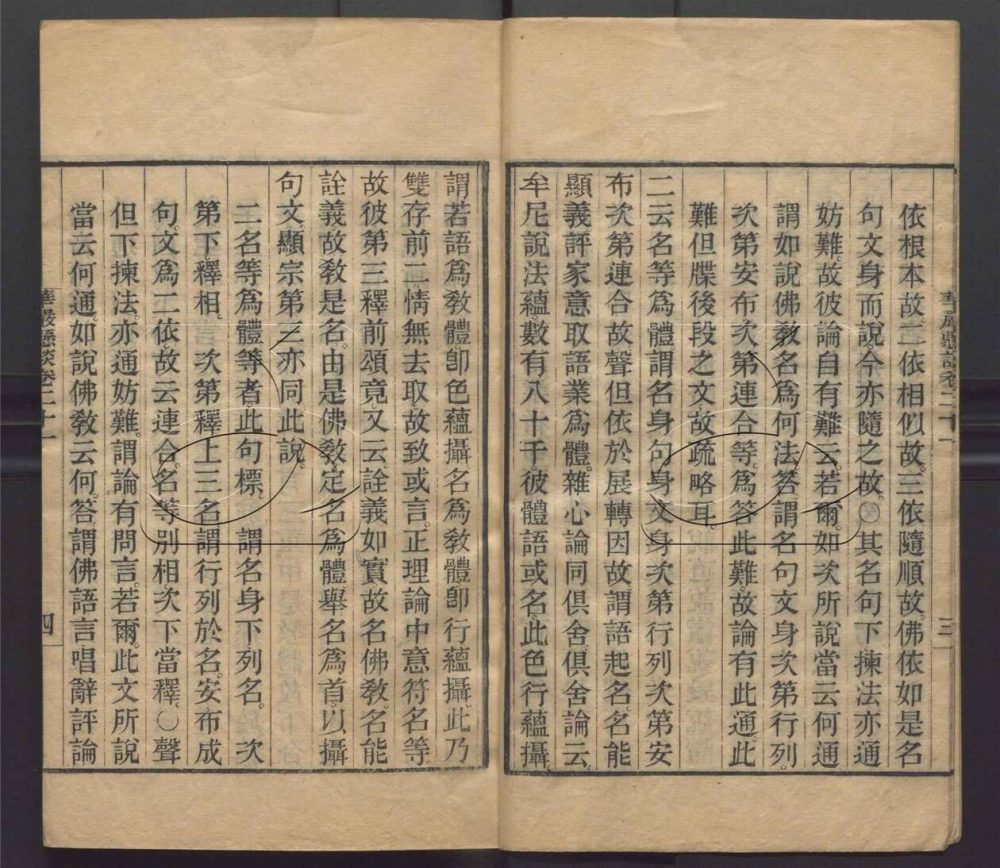 依根本故二依相似故三依隨順故佛依如是名
句文身而說今亦隨之故〇其名句下揀法亦通
妨難故彼論自有難云若爾如次所說當云何通
謂如說佛教名為何法答謂名句文身次第行列
次第安布次第連合等為答此難故論有此通此
難但牒後段之文故疏略耳
二云名等為體謂名身句身文身次第行列次第安
布次第連合故聲但依於展轉因故謂語起名名能
顯義評家意取語業為體雜心論同俱舍俱舍論云
牟尼說法蘊數有八十千彼體語或名此色行蘊攝
華嚴懸談卷二十一
三
謂若語為教體卽色蘊攝名為教體卽行蘊攝此乃
雙存前二情無去取故致或言正理論中意符名等
故彼第三釋前頌竟又云詮義如實故名佛教名能
詮義故教是名由是佛教定名為體舉名為首以攝
句文顯宗第三亦同此說
二名等為體等者此句標 謂名身下列名 次
第下釋相 次第釋上三名謂行列於名安布成
句文為二依故云連合名等別相次下當釋〇聲
但下揀法亦通妨難謂論有問言若爾此文所說
當云何通如說佛教云何答謂佛語言唱辭評論
華嚴懸談卷二十一
四